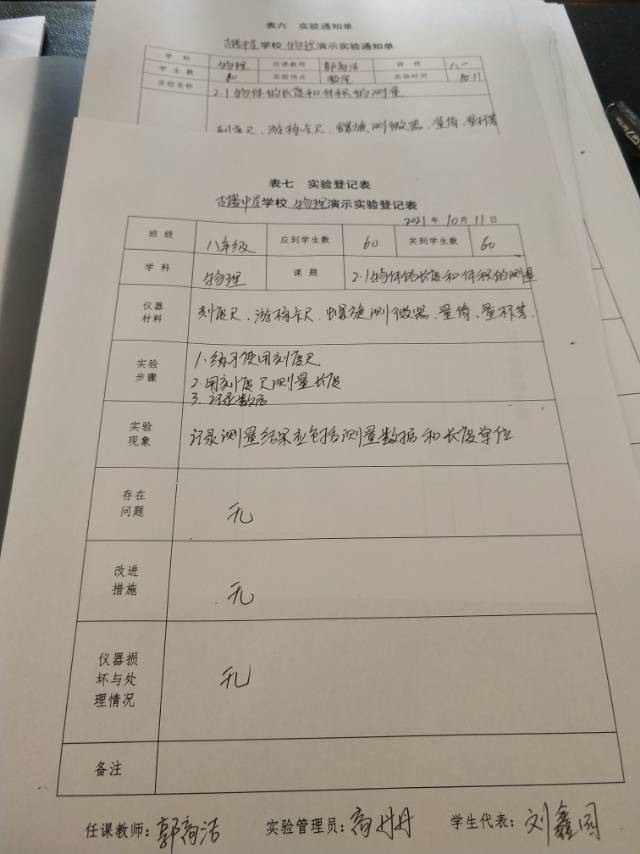 表六 实验通知单
学校 物理 演示实验通知单
学科 物理 任课教师 郭高洁 班级 八一
学生数 60 实验地点 教室 实验时间 10.11
实验名称 2.1物体的长度和体积的测量
刻度尺、游标卡尺、螺旋测微器、量筒、量杯等
表七 实验登记表
学校 物理 演示实验登记表
2021年10月11日
班级 八年级 应到学生数 60 实到学生数 60
学科 物理 课题 2.1物体的长度和体积的测量
仪器
材料
刻度尺、游标卡尺、螺旋测微器、量筒、量杯等.
实验
步骤
1.练习使用刻度尺
2.用刻度尺测量长度
3.记录数据
实验
现象
记录测量结果应包括测量数据和长度单位
存在
问题
无
改进
措施
无
仪器损
坏与处
理情况
无
备注
任课教师：郭高洁 实验管理员：高丹丹 学生代表：刘鑫园